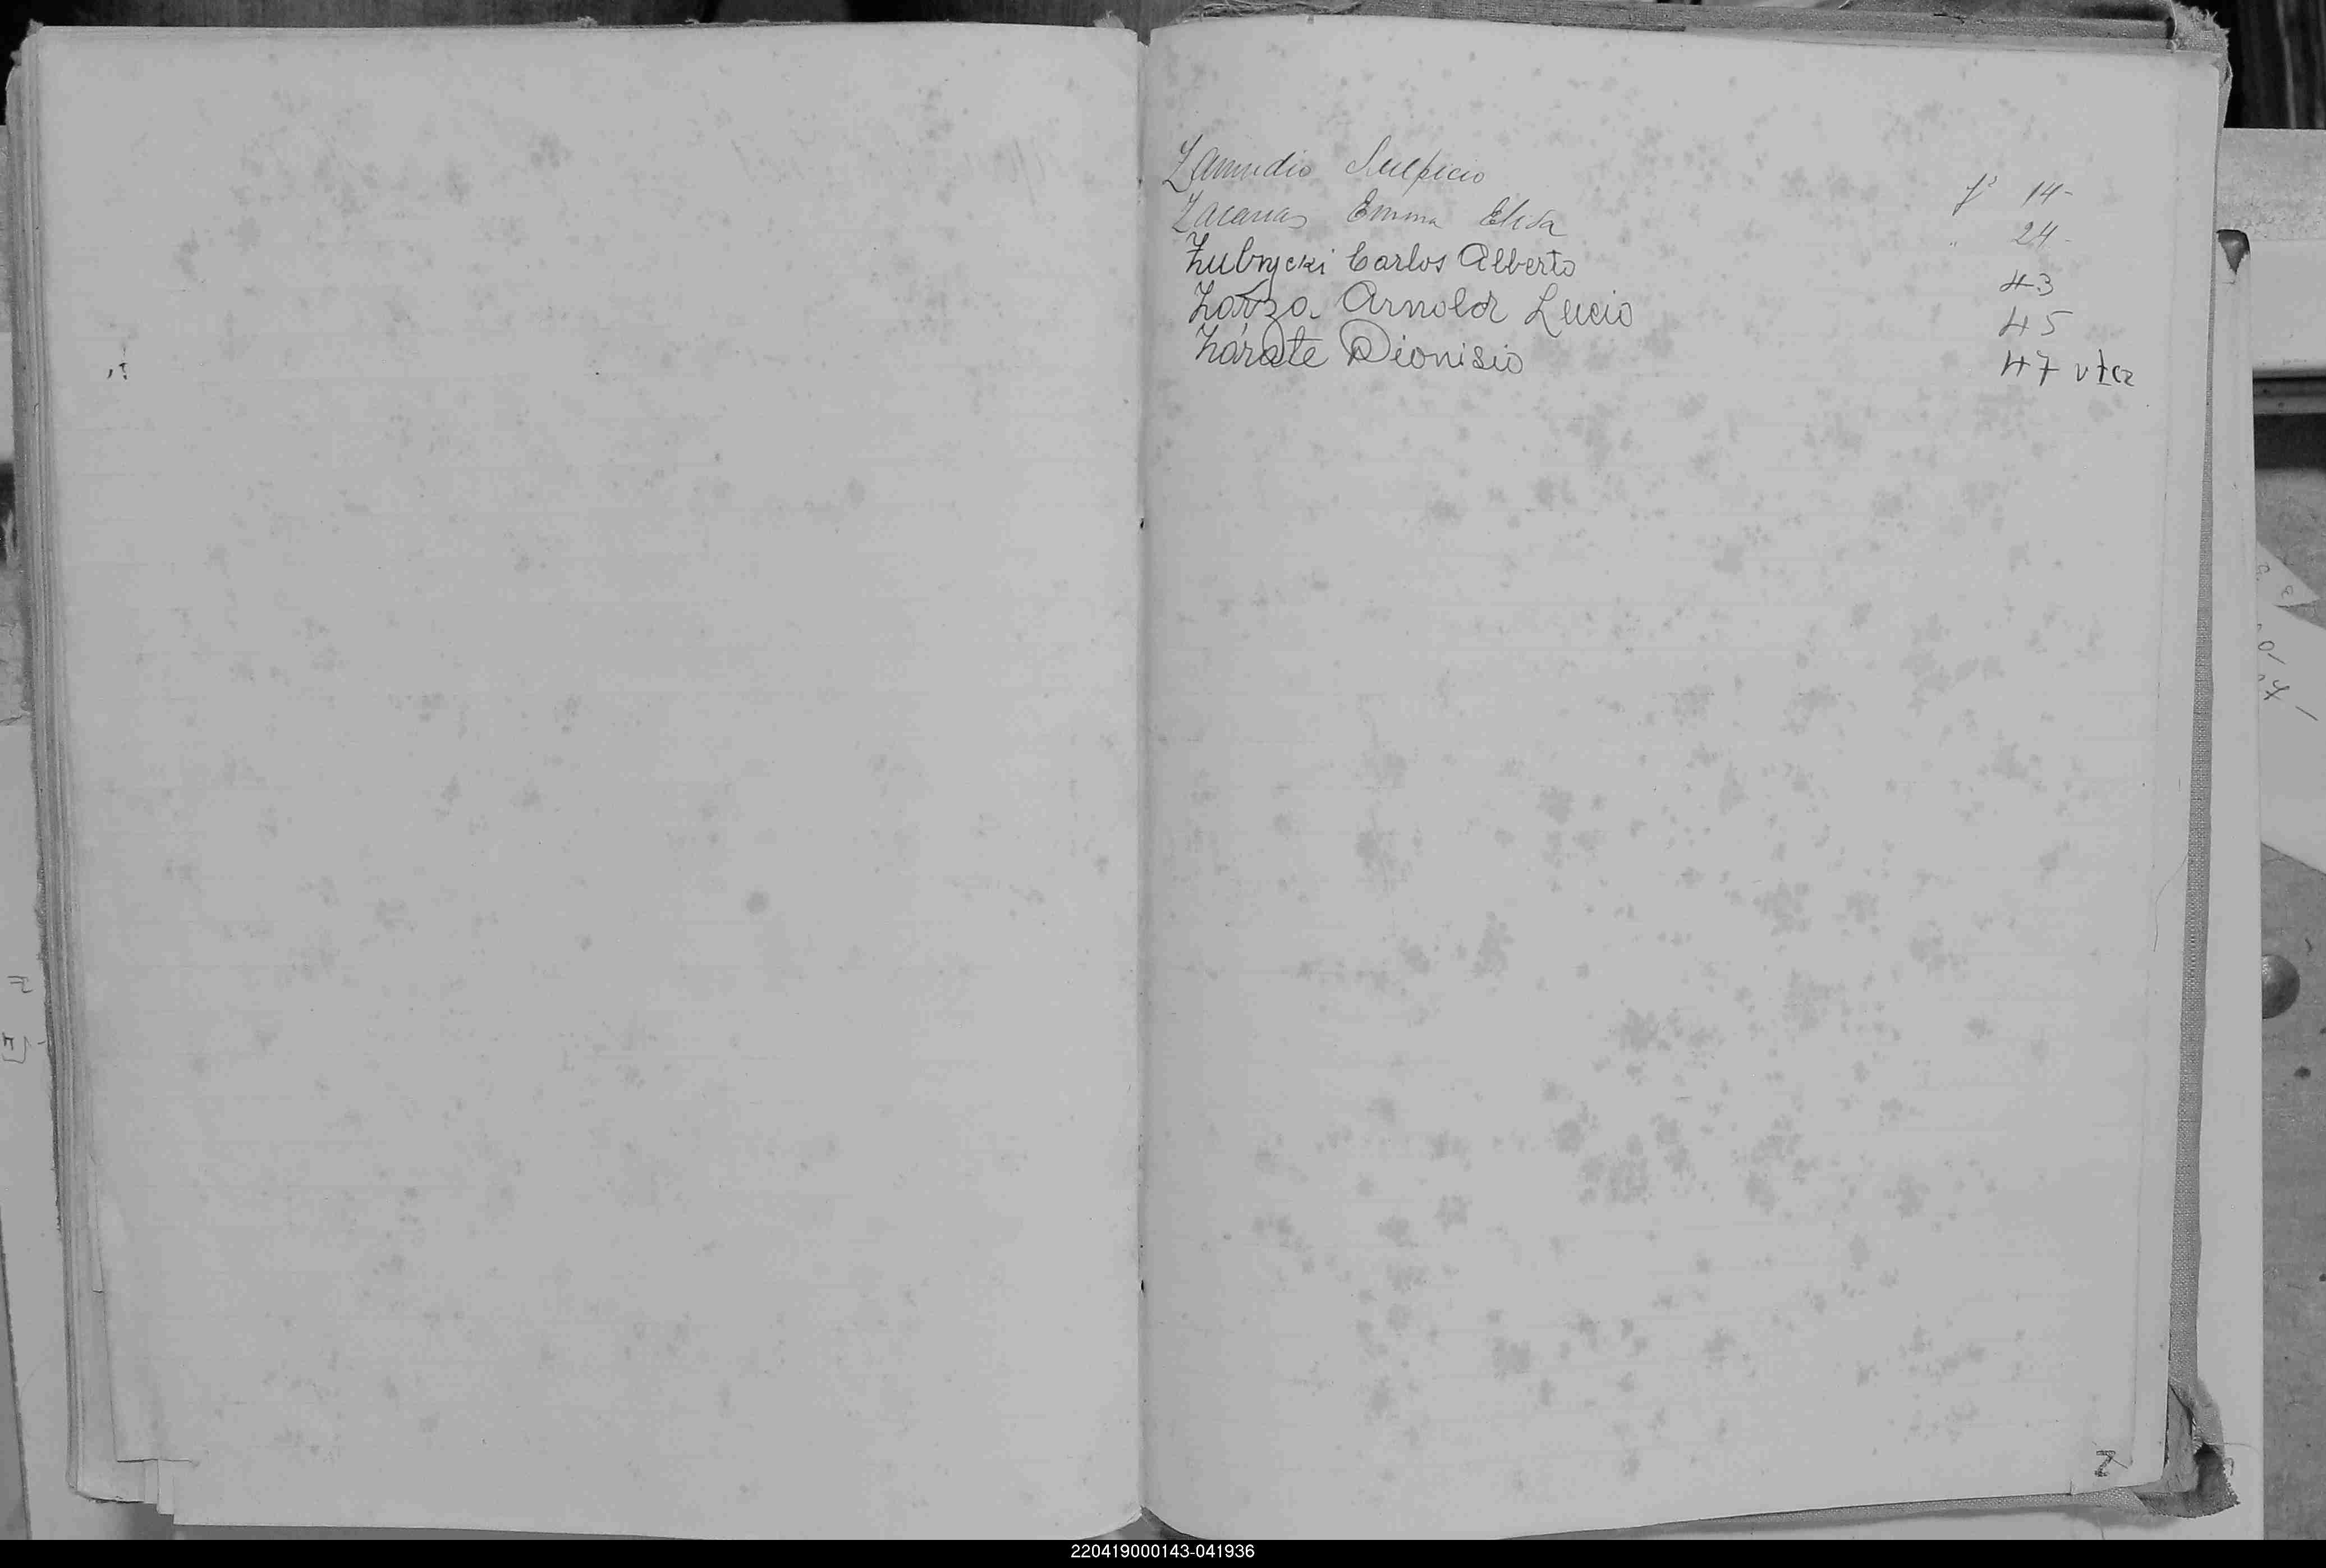 Zamudio Sulpicio fº 14-
Zacarias Emma Elida " 24-
Zubrycki Carlos Alberto 43
Zarza Arnoldo Lucio 45
Zárate Dionisio 47 vta
Z
220419000143-041936